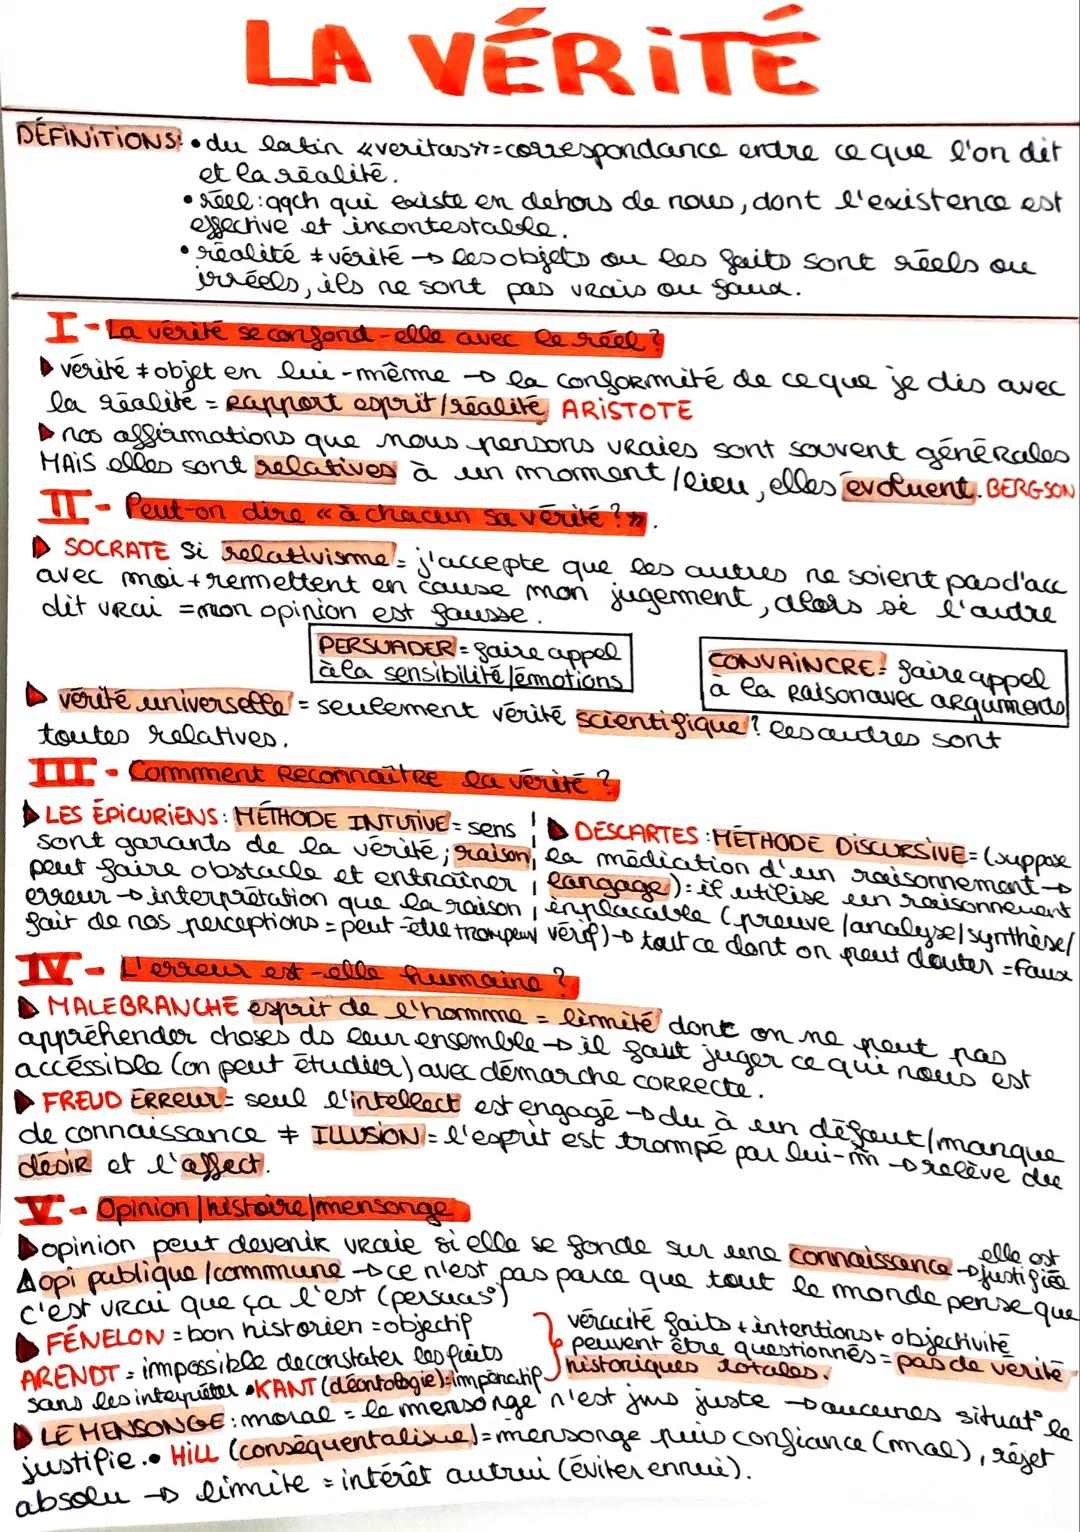 LA VÉRITÉ
DÉFINITIONS: • du latin «veritas»=correspondance entre ce que l'on dit
et la réalité.
• réel: qqch qui existe en dehors de nous, dont l'existence est
effective et incontestable.
• réalité ≠ vérité → les objets ou les faits sont réels ou
irréels, ils ne sont pas vrais ou faux.
I - La vérité se confond-elle avec le réel?
▶ vérité ≠ objet en lui-même → la conformité de ce que je dis avec
la réalité = rapport esprit/réalité ARISTOTE
▶ nos affirmations que nous pensons vraies sont souvent générales
MAIS elles sont relatives à un moment/lieu, elles évoluent. BERGSON
II - Peut-on dire «à chacun sa vérité?».
▶ SOCRATE si relativisme = j'accepte que les autres ne soient pas d'acc
avec moi + remettent en cause mon jugement, alors si l'autre
dit vrai = mon opinion est fausse.
PERSUADER = faire appel
à la sensibilité/émotions
CONVAINCRE: faire appel
à la raison avec arguments
▶ vérité universelle = seulement vérité scientifique? les autres sont
toutes relatives.
III - Comment reconnaître la vérité?
▶ LES ÉPICURIENS: MÉTHODE INTUTIVE = sens
sont garants de la vérité; raison
peut faire obstacle et entraîner
erreur → interprétation que la raison
fait de nos perceptions = peut-être trompeur
▶ DESCARTES: MÉTHODE DISCURSIVE = (suppose
la médiation d'un raisonnement →
langage): il utilise un raisonnement
inplacable (preuve/analyse/synthèse/
vérif) → tout ce dont on peut douter = faux
IV - L'erreur est-elle humaine?
▶ MALEBRANCHE esprit de l'homme = limité dont on ne peut pas
appréhender choses ds leur ensemble → il faut juger ce qui nous est
accéssible (on peut étudier) avec démarche correcte.
▶ FREUD ERREUR = seul l'intellect est engagé → du à un défaut/manque
de connaissance ≠ ILLUSION = l'esprit est trompé par lui-m̂ → relève du
désir et l'affect.
V - Opinion/histoire/mensonge
▶ opinion peut devenir vraie si elle se fonde sur une connaissance → elle est
justifiée
⚠ opi publique/commune → ce n'est pas parce que tout le monde pense que
c'est vrai que ça l'est (persuas°)
▶ FÉNELON = bon historien = objectif
ARENDT = impossible de constater les faits
sans les interpréter • KANT (déontologie): impératif
véracité faits + intentions + objectivité
peuvent être questionnés = pas de verité
historiques totales.
▶ LE MENSONGE: moral = le mensonge n'est jms juste → aucunes situat° le
justifie. • HILL (conséquentalisme) = mensonge puis confiance (mal), réjet
absolu → limite = intérêt autrui (éviter ennui).